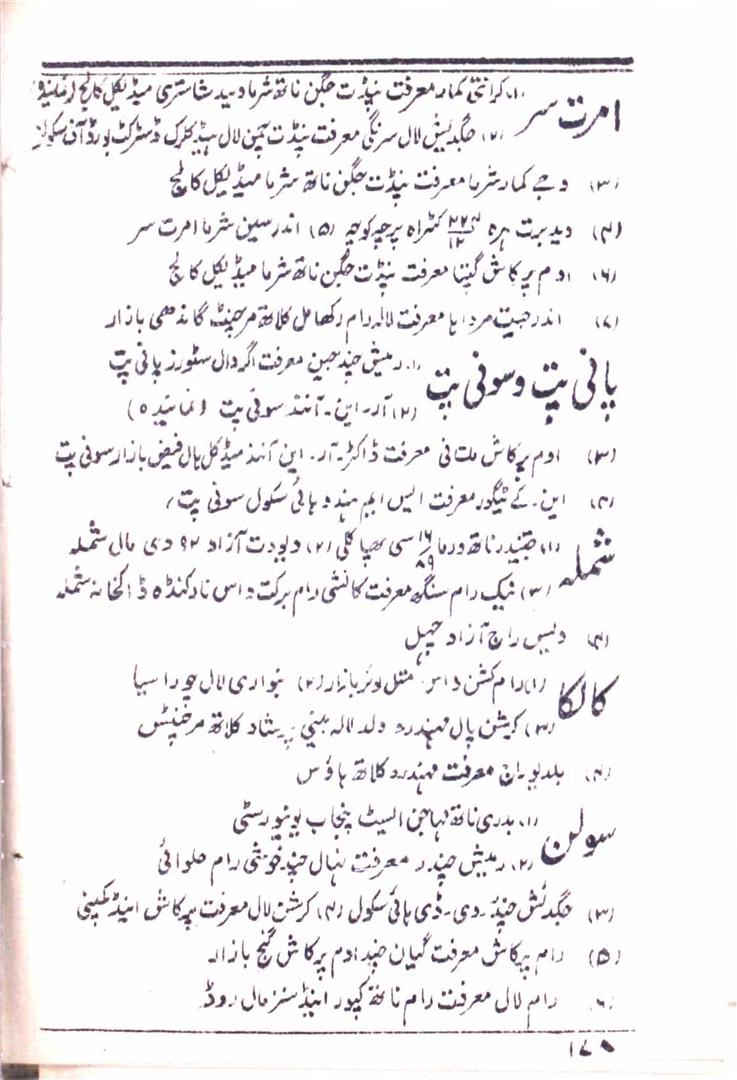 امرت سر (۱) کرانتی کمار معرفت پنڈت جگن ناتھ شرما وید شاستری میڈیکل کالج
(۲) جگدیش لال سرنگی معرفت پنڈت چمن لال ہیڈ کلرک ڈسٹرکٹ بورڈ آف سکولز
(۳) وجے کمار شرما معرفت پنڈت جگن ناتھ شرما میڈیکل کالج
(۴) وید برت ہرہ ۲۲۳/۱۲ کٹراہ پرچہ کوچہ (۵) اندر سین شرما امرت سر
(۶) اوم پرکاش گپتا معرفت پنڈت جگن ناتھ شرما میڈیکل کالج
(۷) اندر جیت مرواہا معرفت لالہ رام رکھا مل کلاتھ مرچنٹ گاندھی بازار
پانی پت و سونی پت (۱) رمیش چند جین معرفت اگروال سٹورز پانی پت
(۲) آر۔ این۔ آنند سونی پت (نمائندہ)
(۳) اوم پرکاش ملتانی معرفت ڈاکٹر۔ آر۔ این آنند میڈیکل ہال فیض بازار سونی پت
(۴) این۔ کے ٹیگور معرفت ایس ایم ہندو ہائی سکول سونی پت،
شملہ (۱) جتیندر ناتھ ورما ۱۶/۸۹ سی پھاگلی (۲) دیودت آزاد ۹۲ دی مال شملہ
(۳) نیک رام سنگھ معرفت کانشی رام برکت داس نارکنڈہ ڈاکخانہ شملہ
(۴) دلیس راج آزاد چہل
کالکا (۱) رام کشن داس متصل لوئر بازار (۲) بنواری لال چوراسیا
(۳) کرشن پال مہندرو ولد لالہ بینی پرشاد کلاتھ مرچنٹس
(۴) بلدیو راج معرفت مہندرو کلاتھ ہاؤس
سولن (۱) بدری ناتھ مہاجن ایسٹ پنجاب یونیورسٹی
(۲) رمیش چندر معرفت نہال چند خوشی رام حلوائی
(۳) جگدیش چندر۔ دی۔ ڈی ہائی سکول (۴) کرشن لال معرفت پرکاش اینڈ کمپنی
(۵) رام پرکاش معرفت گیان چند اوم پرکاش گنج بازار
(۶) رام لال معرفت رام ناتھ کپور اینڈ سنز مال روڈ
۱۷۸